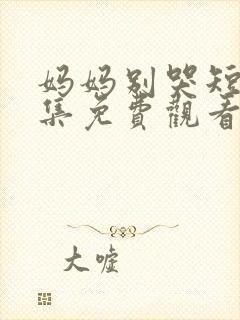 妈妈别哭短
集免费觀看
大嘘